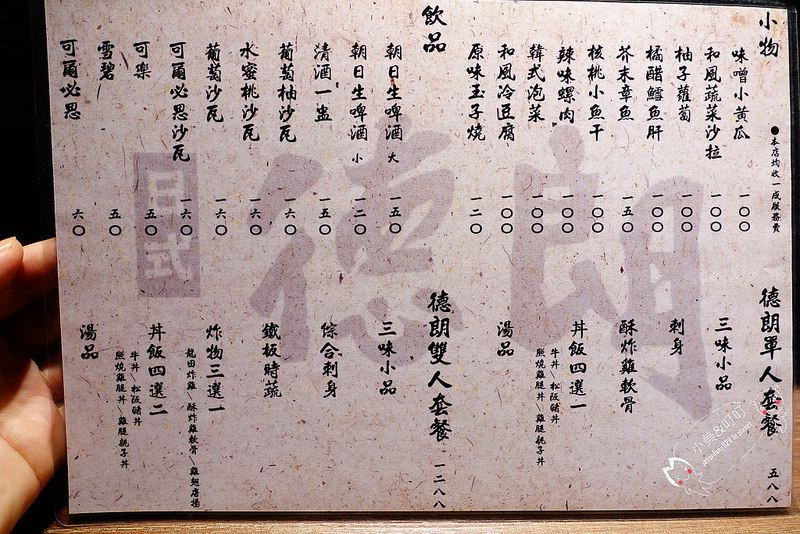 小物
●本店均收一成服務費
味噌小黃瓜 一〇〇
和風蔬菜沙拉 一〇〇
柚子蘿蔔 一〇〇
橘醋鱈魚肝 一〇〇
芥末章魚 一五〇
核桃小魚干 一〇〇
辣味螺肉 一〇〇
韓式泡菜 一〇〇
和風冷豆腐 一〇〇
原味玉子燒 一二〇
飲品
朝日生啤酒 大 一五〇
朝日生啤酒 小 一二〇
清酒一盅 一五〇
葡萄柚沙瓦 一六〇
水蜜桃沙瓦 一六〇
葡萄沙瓦 一六〇
可爾必思沙瓦 一六〇
可樂 五〇
雪碧 五〇
可爾必思 六〇
德朗單人套餐 五八八
三味小品
刺身
酥炸雞軟骨
丼飯四選一
牛丼\松阪豬丼
照燒雞腿丼\雞腿親子丼
湯品
德朗雙人套餐 一二八八
三味小品
綜合刺身
鐵板時蔬
炸物三選一
龍田炸雞\酥炸雞軟骨 雞翅唐揚
丼飯四選二
牛丼\松阪豬丼
照燒雞腿丼\雞腿親子丼
湯品
德朗
小美&叮叮